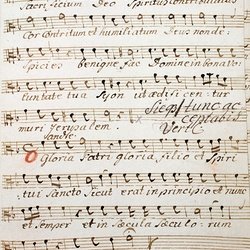 Sacri ficium Deo Spiritus contribulatus
Cor contritum et humiliatum Deus non de:
spicies benigne fac Domine in bona vo:
luntate tua Sion ut ædificen: tur
Tunc ac
muri Jerusalem. ceptabis
Vert
Gloria Patri gloria filio et Spiri
tui Sancto Sicut erat in principio et nunc
et Semper et in Sæcula Sæculo: rum